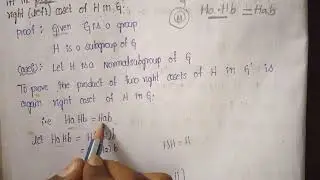 right (left) coset of H in G.
Ha.Hb = Hab
proof: Given G is a group
H is a subgroup of G
Case(i): Let H is a normal subgroup of G
To prove the product of two right cosets of H in G is
again right coset of H in G.
i.e Ha Hb = Hab
let Ha Hb =
HH = H